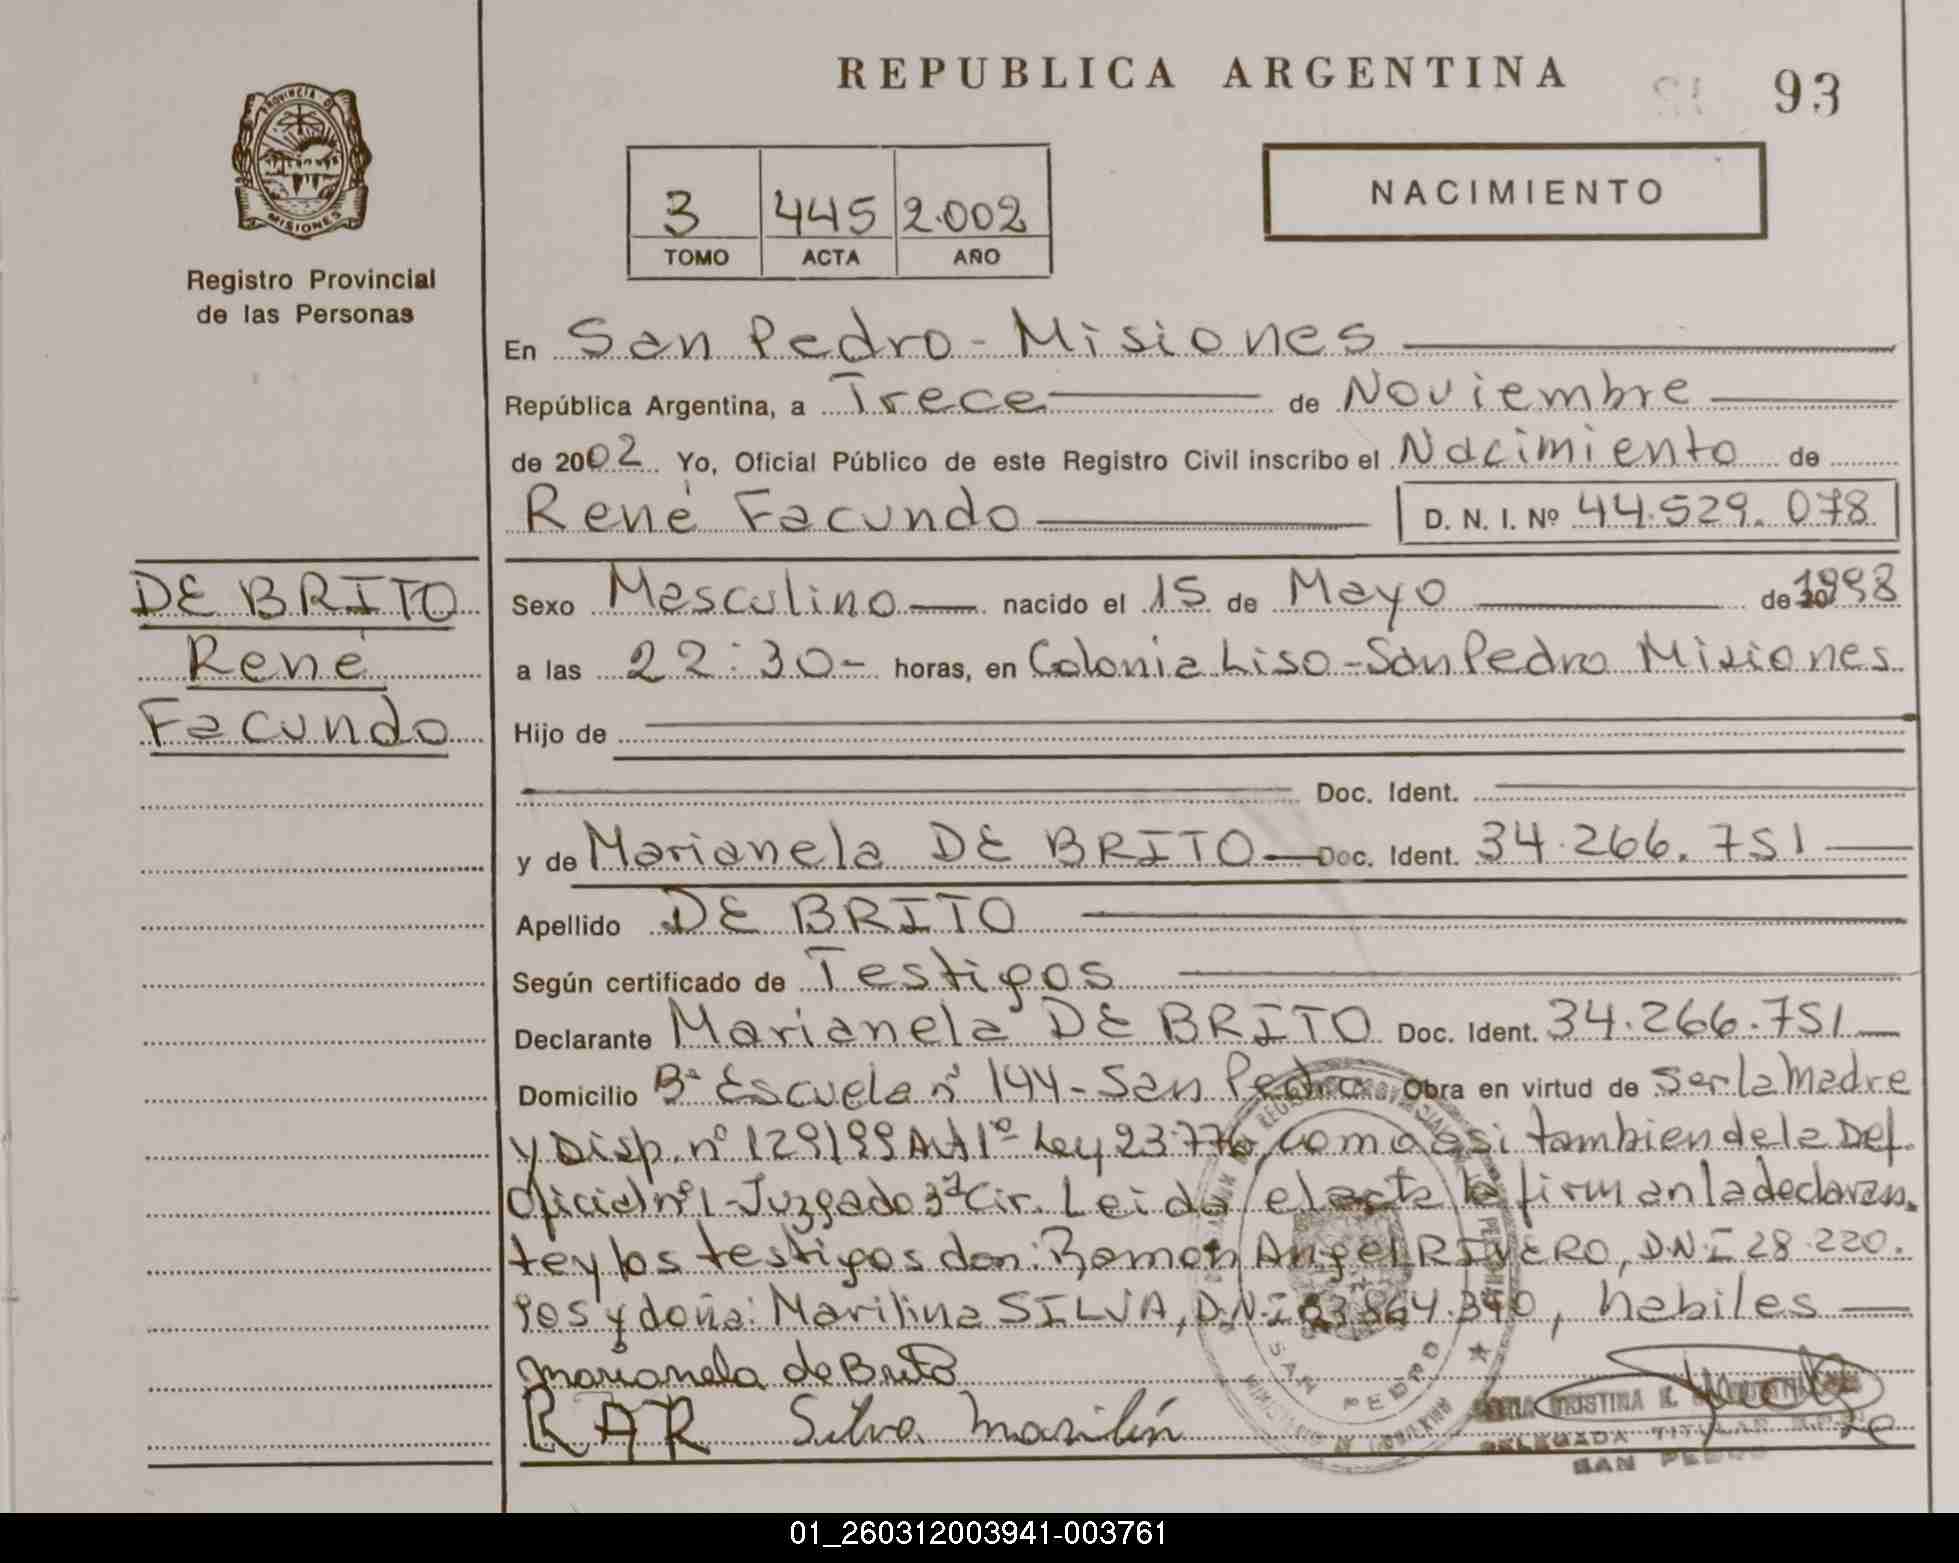 REPUBLICA ARGENTINA
93
PROVINCIA DE MISIONES
Registro Provincial
de las Personas
3 445 2.002
TOMO ACTA AÑO
NACIMIENTO
En San Pedro - Misiones
República Argentina, a Trece de Noviembre
de 2002 Yo, Oficial Público de este Registro Civil inscribo el Nacimiento de
René Facundo D. N. I. Nº 44.529.078
DE BRITO
René
Facundo
Sexo Masculino nacido el 15 de Mayo de 1998
a las 22:30- horas, en Colonia Liso - San Pedro Misiones
Hijo de
Doc. Ident.
y de Marianela DE BRITO Doc. Ident. 34.266.751
Apellido DE BRITO
Según certificado de Testigos
Declarante Marianela DE BRITO Doc. Ident. 34.266.751
Domicilio Bº Escuela nº 144 - San Pedro Obra en virtud de ser la madre
y Disp. nº 129/99 Art 1º Ley 23.776, como asi tambien de la Def.
Oficial nº 1 - Juzgado 3ª Cir. Leida el acta la firman la declaran.
te y los testigos don: Ramon Angel RIVERO, D.N.I 28.220.
905 y doña: Marilina SILVA, D.N.I 23.864.340, habiles
marianela de Brito
RAR Silva Marilin
SAN PEDRO
CRISTINA
DELEGADA TITULAR
SAN PEDRO
01_260312003941-003761